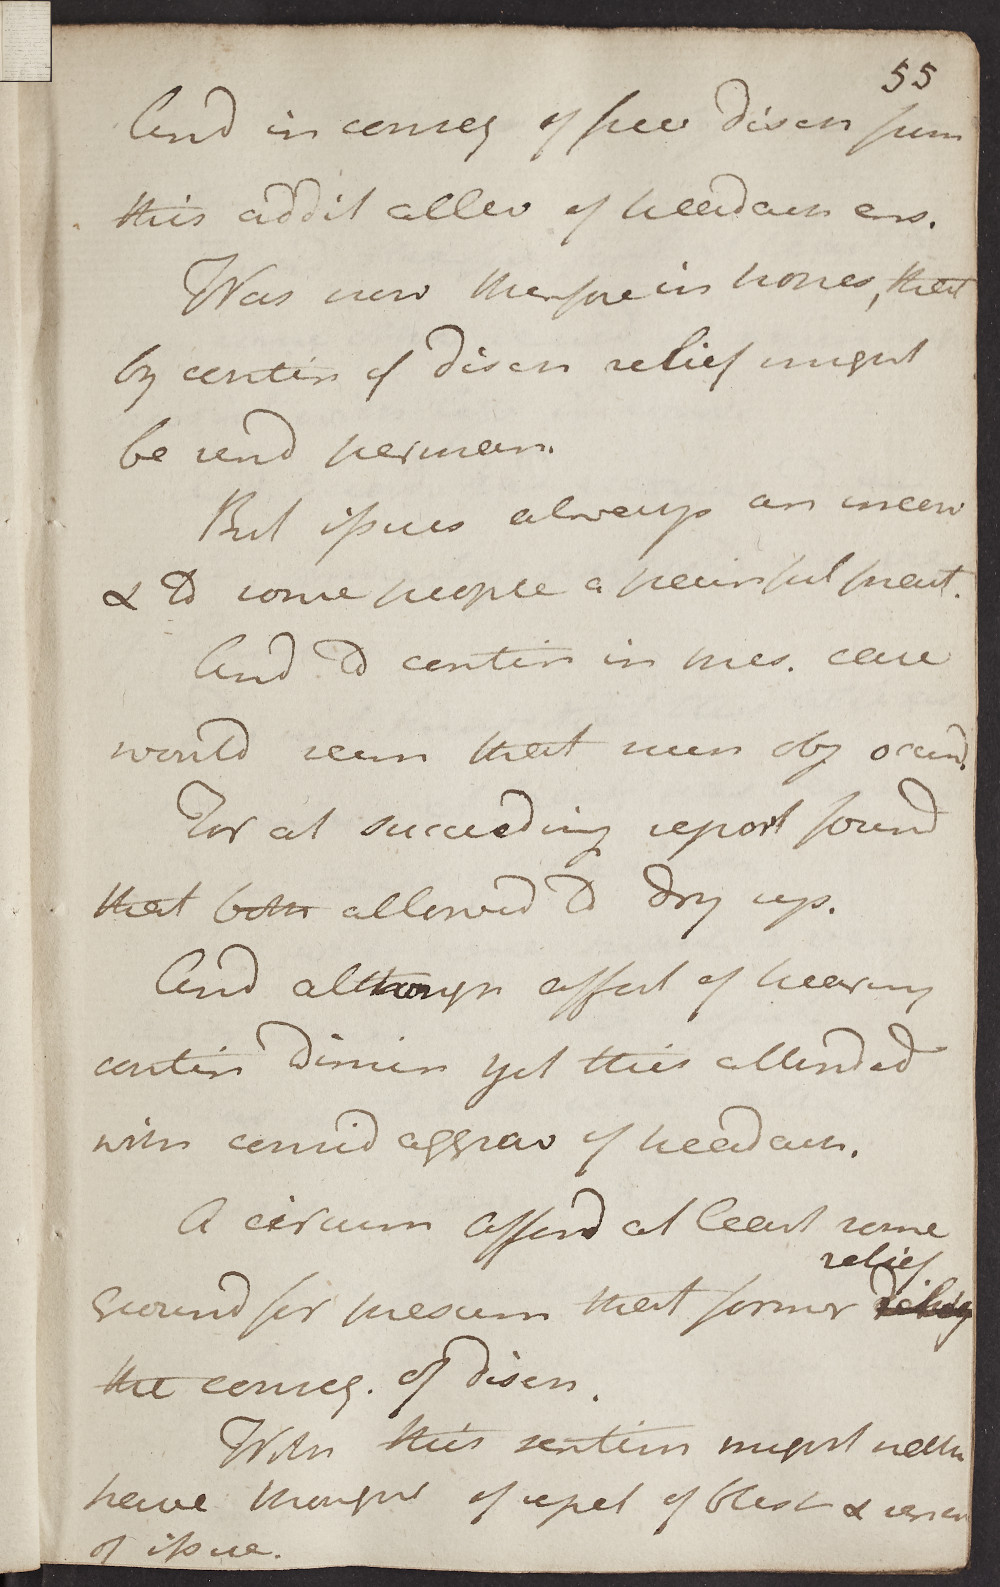 55
And in conseq of free disch from
this addit allev of headach ens.
Was now therefore in hopes, that
by contin of disch relief might
be rend perman.
But issues always an incon
& to some people a painful pract.
And to contin in pres. case
would seem that even obj occurd.
For at succeeding report found
that both allowed to dry up.
And although affect of hearing
contin dimin yet this attended
with consid aggrav of headach.
A circum afford at least some
relief
ground for presum that former
the conseq. of disch.
With this sentim might
have thought of repet of blist &
of issue.